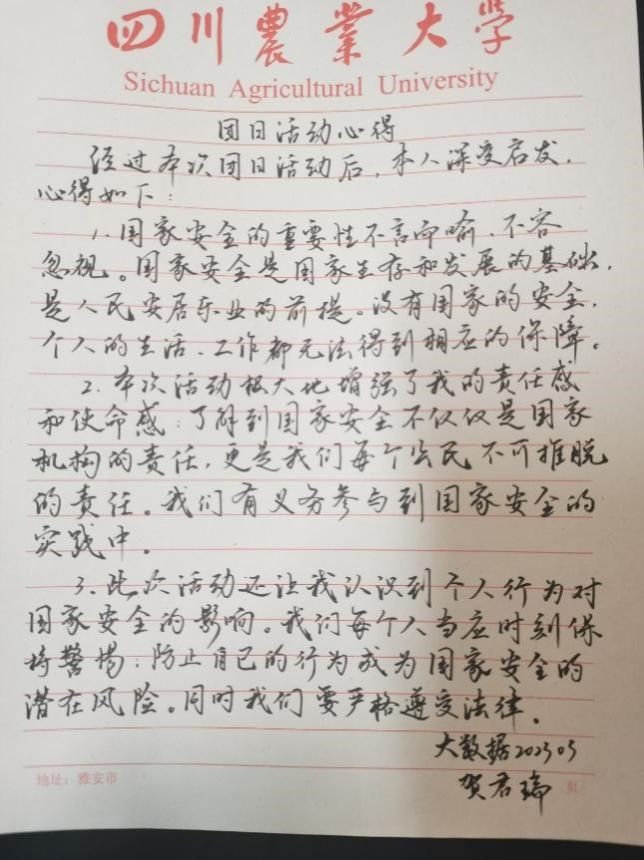 四川農業大学
Sichuan Agricultural University
团日活动心得
经过本次团日活动后，本人深受启发，
心得如下：
1. 国家安全的重要性不言而喻、不容
忽视。国家安全是国家生存和发展的基础，
是人民安居乐业的前提。没有国家的安全，
个人的生活、工作都无法得到相应的保障。
2. 本次活动极大地增强了我的责任感
和使命感：了解到国家安全不仅仅是国家
机构的责任，更是我们每个公民不可推脱
的责任。我们有义务参与到国家安全的
实践中。
3. 此次活动还让我认识到个人行为对
国家安全的影响。我们每个人当应时刻保
持警惕；防止自己的行为成为国家安全的
潜在风险。同时我们要严格遵受法律。
大数据202305
贺君瑞
地址：雅安市
页